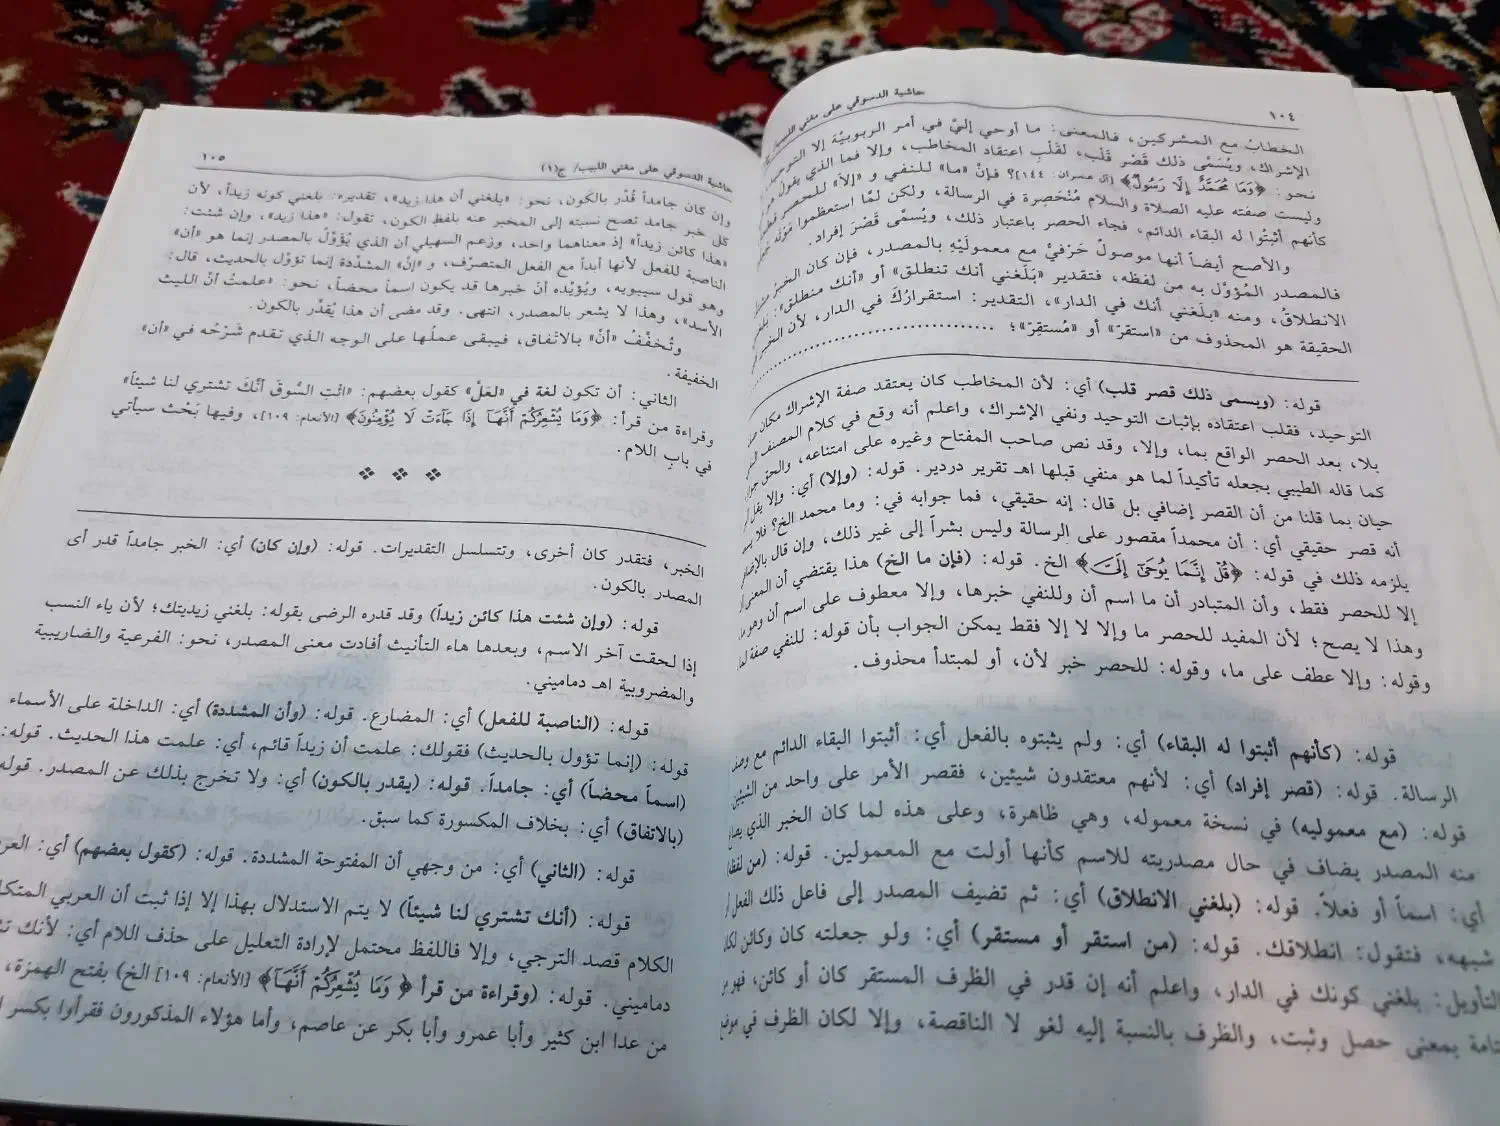 ١٠٤
حاشية الدسوقي على مغني اللبيب/
الخطابُ مع المشركين، فالمعنى: ما أوحي إليّ في أمر الربوبيّة إلا التوحيد،
الإشراك، ويسَمّى ذلك قَصْر قَلْب، لقَلْبِ اعتقاد المخاطَب، وإلا فما الذي يقول هو في
نحو: ﴿وَمَا مُحَمَّدٌ إِلَّا رَسُولٌ﴾ [آل عمران: ١٤٤]؟ فإنّ «ما» للنفي و «إلا» للحصر قطعاً
وليست صفته عليه الصلاة والسلام مُنْحَصِرة في الرسالة، ولكن لمّا استعظموا مَوْتَه
كأنهم أثبتُوا له البقاء الدائم، فجاء الحصر باعتبار ذلك، ويُسَمَّى قَصْرَ إفراد.
والأصح أيضاً أنها موصولٌ حَرْفيٌّ مع معموليْهِ بالمصدر، فإن كان الخبرُ
فالمصدر المُؤوَّل به من لفظه، فتقدير «بَلَغني أنك تنطلق» أو «أنك منطلق»:
الانطلاقُ، ومنه «بلَغني أنك في الدار»، التقدير: استقرارُكَ في الدار، لأن الخبر
الحقيقة هو المحذوف من «استقرّ» أو «مُستقِرّ»؛ ........................
قوله: (ويسمى ذلك قصر قلب) أي: لأن المخاطب كان يعتقد صفة الإشراك مكان
التوحيد، فقلب اعتقاده بإثبات التوحيد ونفي الإشراك، واعلم أنه وقع في كلام المصنف
بلا، بعد الحصر الواقع بما، وإلا، وقد نص صاحب المفتاح وغيره على امتناعه، والحق
كما قاله الطيبي بجعله تأكيداً لما هو منفي قبلها اهـ تقرير دردير. قوله: (وإلا) أي: وإلا يقل
حيان بما قلنا من أن القصر إضافي بل قال: إنه حقيقي، فما جوابه في: وما محمد الخ؟ فلا
أنه قصر حقيقي أي: أن محمداً مقصور على الرسالة وليس بشراً إلى غير ذلك، وإن قال
يلزمه ذلك في قوله: ﴿قُلْ إِنَّمَا يُوحَىٰ إِلَيَّ﴾ الخ. قوله: (فإن ما الخ) هذا يقتضي أن المعنى
إلا للحصر فقط، وأن المتبادر أن ما اسم أن وللنفي خبرها، وإلا معطوف على اسم أن وهو ما
وهذا لا يصح؛ لأن المفيد للحصر ما وإلا لا إلا فقط يمكن الجواب بأن قوله: للنفي صفة لما
وقوله: وإلا عطف على ما، وقوله: للحصر خبر لأن، أو لمبتدأ محذوف.
قوله: (كأنهم أثبتوا له البقاء) أي: ولم يثبتوه بالفعل أي: أثبتوا البقاء الدائم مع وصف
الرسالة. قوله: (قصر إفراد) أي: لأنهم معتقدون شيئين، فقصر الأمر على واحد من الشيئين
قوله: (مع معموليه) في نسخة معموله، وهي ظاهرة، وعلى هذه لما كان الخبر الذي
منه المصدر يضاف في حال مصدريته للاسم كأنها أولت مع المعمولين. قوله: (من لفظه)
أي: اسماً أو فعلاً. قوله: (بلغني الانطلاق) أي: ثم تضيف المصدر إلى فاعل ذلك الفعل
شبهه، فتقول: انطلاقك. قوله: (من استقر أو مستقر) أي: ولو جعلته كان وكائن لكان
التأويل: بلغني كونك في الدار، واعلم أنه إن قدر في الظرف المستقر كان أو كائن، فهو من
تامة بمعنى حصل وثبت، والظرف بالنسبة إليه لغو لا الناقصة، وإلا لكان الظرف في
حاشية الدسوقي على مغني اللبيب/ ج(١)
١٠٥
وإن كان جامداً قُدّر بالكَون، نحو: «بلغني أن هذا زيد»، تقديره: بلغني كونه زيداً، لأن
كل خبر جامد تصح نسبته إلى المخبر عنه بلفظ الكون، تقول: «هذا زيد»، وإن شئت:
«هذا كائن زيداً» إذ معناهما واحد، وزعم السهيلي أن الذي يُؤوَّلُ بالمصدر إنما هو «أن»
الناصبة للفعل لأنها أبداً مع الفعل المتصرِّف، و «إنّ» المشدّدة إنما تؤول بالحديث، قال:
وهو قول سيبويه، ويُؤيّده أنّ خبرها قد يكون اسماً محضاً، نحو: «علمتُ أنّ الليث
الأسد»، وهذا لا يشعر بالمصدر، انتهى. وقد مضى أن هذا يُقدَّر بالكون.
وتُخفَّفُ «أنّ» بالاتفاق، فيبقى عملُها على الوجه الذي تقدم شَرْحُه في «أن»
الخفيفة.
الثاني: أن تكون لغة في «لعَلّ» كقول بعضهم: «ائتِ السُّوقَ أنّكَ تشتري لنا شيئاً»
وقراءة من قرأ: ﴿وَمَا يُشْعِرُكُمْ أَنَّهَا إِذَا جَاءَتْ لَا يُؤْمِنُونَ﴾ [الأنعام: ١٠٩]، وفيها بَحْث سيأتي
في بابِ اللام.
❖ ❖ ❖
الخبر، فتقدر كان أخرى، وتتسلسل التقديرات. قوله: (وإن كان) أي: الخبر جامداً قدر أى
المصدر بالكون.
قوله: (وإن شئت هذا كائن زيداً) وقد قدره الرضى بقوله: بلغني زيديتك؛ لأن ياء النسب
إذا لحقت آخر الاسم، وبعدها هاء التأنيث أفادت معنى المصدر، نحو: الفرعية والضاربية
والمضروبية اهـ دماميني.
قوله: (الناصبة للفعل) أي: المضارع. قوله: (وأن المشددة) أي: الداخلة على الأسماء
قوله: (إنما تؤول بالحديث) فقولك: علمت أن زيداً قائم، أي: علمت هذا الحديث. قوله:
(اسماً محضاً) أي: جامداً. قوله: (يقدر بالكون) أي: ولا تخرج بذلك عن المصدر. قوله
(بالاتفاق) أي: بخلاف المكسورة كما سبق.
قوله: (الثاني) أي: من وجهي أن المفتوحة المشددة. قوله: (كقول بعضهم) أي:
قوله: (أنك تشتري لنا شيئاً) لا يتم الاستدلال بهذا إلا إذا ثبت أن العربي
الكلام قصد الترجي، وإلا فاللفظ محتمل لإرادة التعليل على حذف اللام أي: لأنك
دماميني. قوله: (وقراءة من قرأ ﴿ وَمَا يُشْعِرُكُمْ أَنَّهَا﴾ [الأنعام: ١٠٩] الخ) بفتح الهمزة،
من عدا ابن كثير وأبا عمرو وأبا بكر عن عاصم، وأما هؤلاء المذكورون فقرأوا بكسر